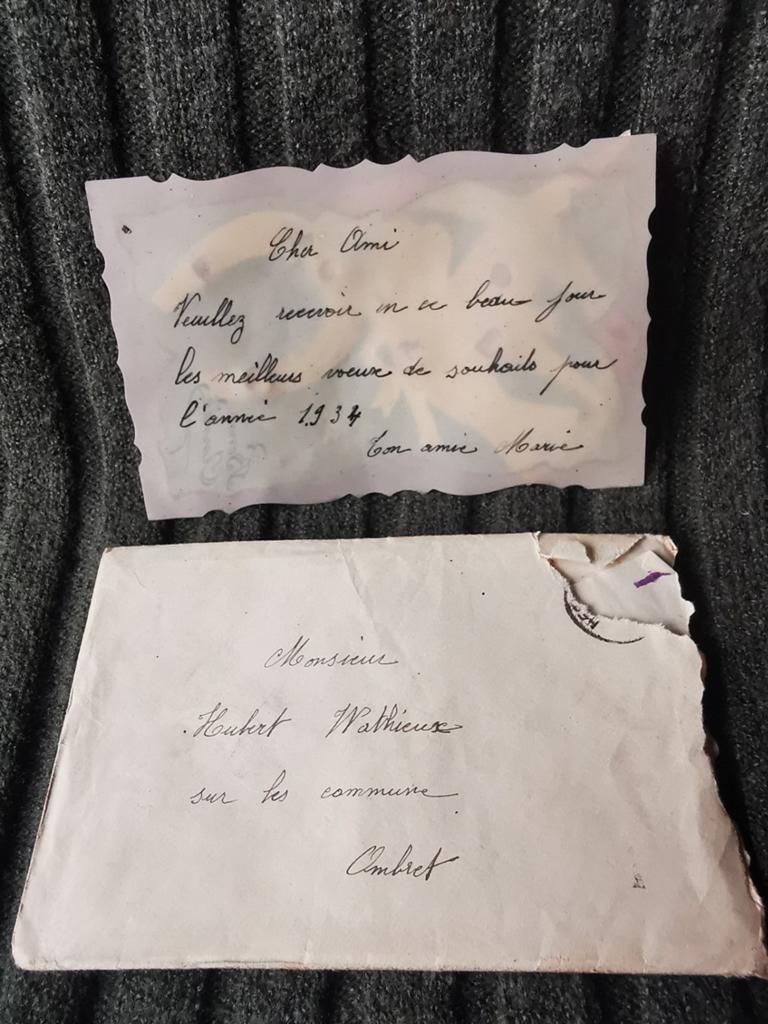 Cher Ami
Veuillez recevoir en ce beau jour
les meilleurs voeux de souhaits pour
l'année 1934
Ton amie Marie
Monsieur
Hubert Wathieux
sur les commune
Ombret